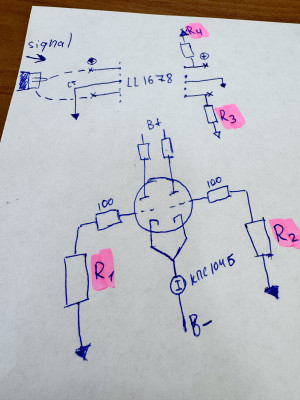 signal
R4
⊕
⊕
CT
LL1678
R3
B+
100
100
R1
R2
I
КПС104Б
B-